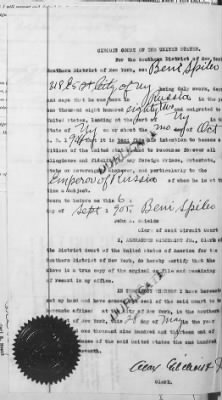 CIRCUIT COURT OF THE UNITED STATES,
For the Southern District of New York
Southern District of New York, ss: Beni Spiler
218 E. St City of Ny being duly sworn, depo
and says that he was born in Russia in the
one thousand eight hundred eighty and emigrated to
United States, landing at the port of Ny
State of Ny on or about the day of Oct
A. D. 1 that it is bona fide intention to become a
citizen of the United States and to renounce for ever all
allegiance and fidelity to any foreign Prince, Potentate,
State or Sovereignty whatever, and particularly to the
Emperor of Russia of whom he is at th
time a subject.
Sworn to before me this 6
day of Sept 905. Beni Spiler
John A. Shields
Clerk of said Circuit Court
I, ALEXANDER GILCHRIST JR., Clerk of
the District Court of the United States of America for the
Southern District of New York, do hereby certify that the
above is a true copy of the original on file and remaining
of record in my office.
IN TESTIMONY WHEREOF I have hereunto
set my hand and have caused the seal of the said court to be
hereunto affixed at the City of New York, in the Southern
District of New York, this 28 day of May in the year
one thousand nine hundred and thirteen and of
Independence of the said United States the one hundred
seventh.
Alex Gilchrist Jr
CLERK.